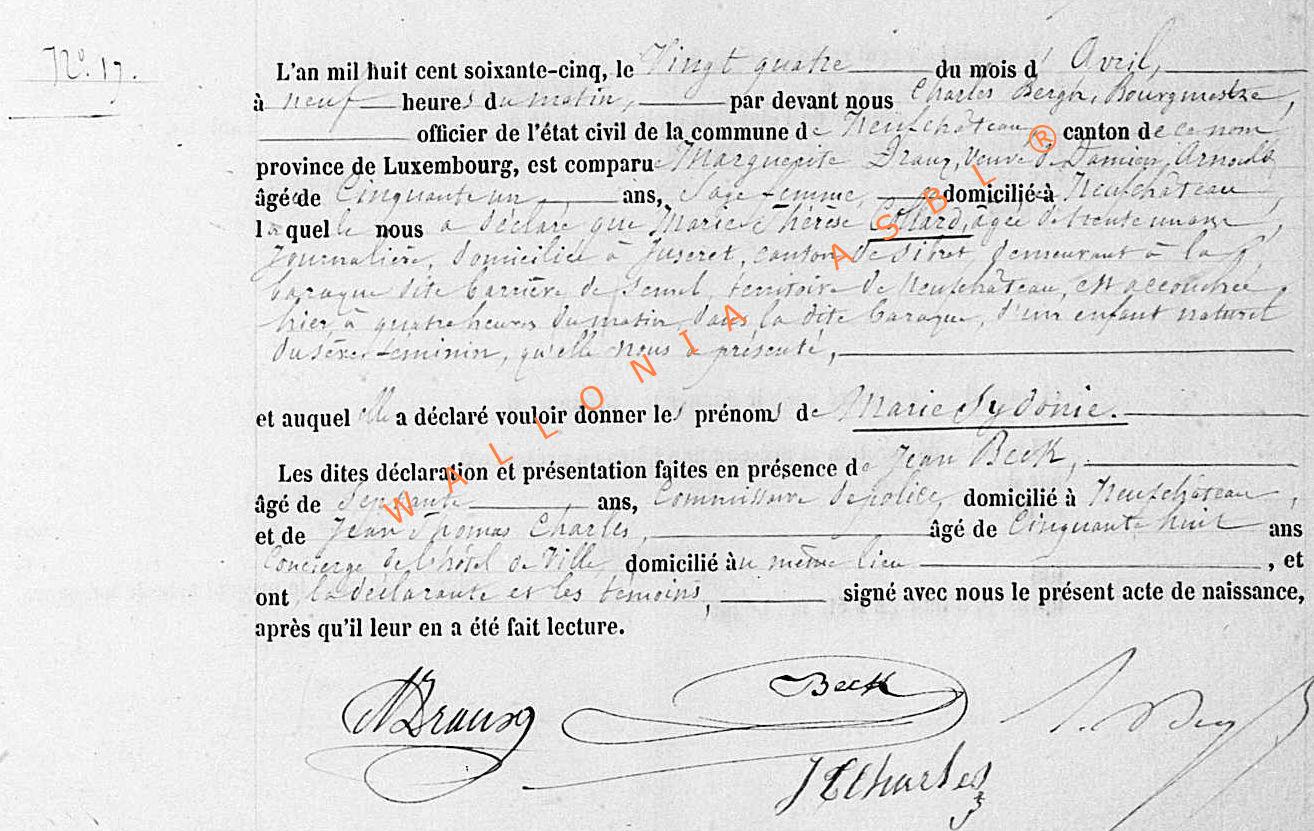 N°. 17.
L'an mil huit cent soixante-cinq, le Vingt quatre du mois d'Avril,
à neuf heures du matin, par devant nous Charles Bergh, Bourgmestre,
officier de l'état civil de la commune de Neufchâteau, canton de ce nom
province de Luxembourg, est comparue Marguerite Draux, Veuve de Damien Arnould
âgée de Cinquante un ans, Sage femme, domiciliée à Neufchâteau,
laquelle nous a déclaré que Marie Thérèse Collard, âgée de trente un ans,
Journalière, domiciliée à Juseret, canton de Sibret, demeurant à la
baraque dite barrière de Semel, territoire de Neufchâteau, est accouchée
hier, à quatre heures du matin, dans la dite baraque, d'un enfant naturel
du sexe féminin, qu'elle nous a présenté,
et auquel elle a déclaré vouloir donner les prénoms de Marie Sydonie.
Les dites déclaration et présentation faites en présence de Jean Beck,
âgé de Septante ans, Commissaire de police, domicilié à Neufchâteau,
et de Jean Thomas Charles, âgé de Cinquante huit ans
Concierge de l'hôtel de Ville domicilié au même lieu, et
ont la déclarante et les témoins, signé avec nous le présent acte de naissance,
après qu'il leur en a été fait lecture.
Beck
JTCharles
WALLONIA ASBL ®